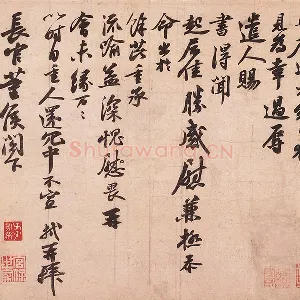 見為幸過辱
遣人賜
書得聞
起居佳勝感慰兼極忝
命出於
餘芘重承
流喻益深愧畏再
會未緣萬萬
以時自重人還冗中不宣 軾再拜
長官董侯閣下
Shufawang.CN